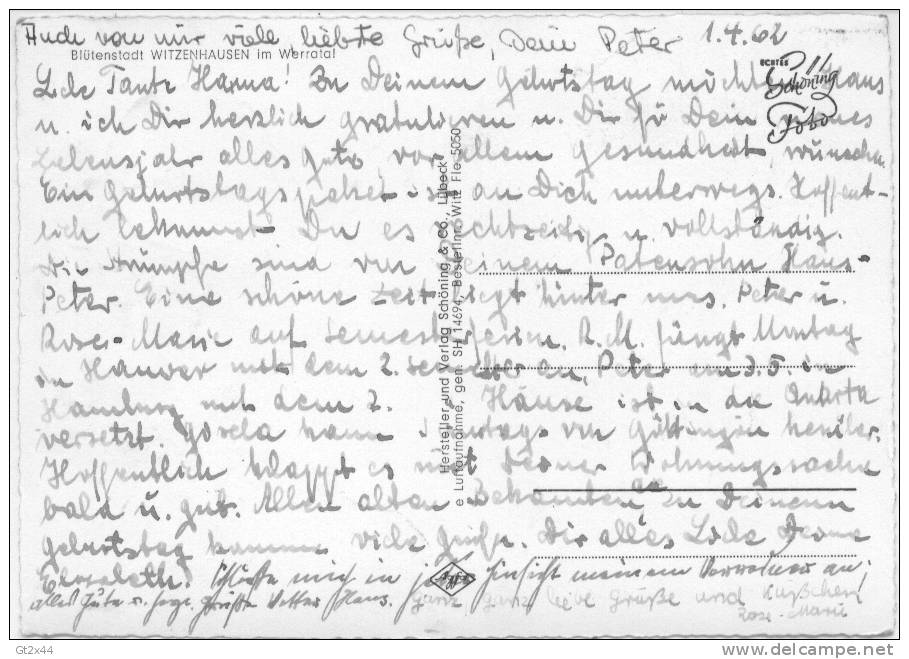 Auch von mir viele liebste Grüße, Dein Peter 1.4.62
Blütenstadt WITZENHAUSEN im Werratal
ECHTES Schöning Foto
Liebe Tante Hanna! Zu Deinem Geburtstag möchten Klaus
u. ich Dir herzlich gratulieren u. Dir für Dein neues
Lebensjahr alles Gute vor allem Gesundheit, wünschen.
Ein Geburtstagspaket ist an Dich unterwegs. Hoffent-
lich bekommst Du es rechtzeitig u. vollständig.
Die Strümpfe sind von Deinem Patensohn Hans-
Peter. Eine schöne Zeit liegt hinter uns. Peter u.
Rose-Marie auf Semesterferien. R. M. fängt Montag
in Hannover mit dem 2. Semester an, Peter am 3.5. in
Hamburg mit dem 2. ist in die Quarta
versetzt. Gisela kam von Göttingen
Hoffentlich klappt es mit Deiner Wohnungssache
bald u. gut. Allen alten Bekannten die zu Deinem
Geburtstag kommen viele Grüße. Dir alles Liebe Deine
Elisabeth. Schließe mich in jeder Hinsicht meinem Vorredner an:
alles Gute u. Grüße Vetter Hans. Ganz ganz liebe Grüße und Küßchen
Rose-Marie
Hersteller und Verlag Schöning & Co., Lübeck
e Luftaufnahme, gen. SH 14694, Bestellnr. Witz Fle 5050
Agfa
Gt2x44
www.delcampe.net